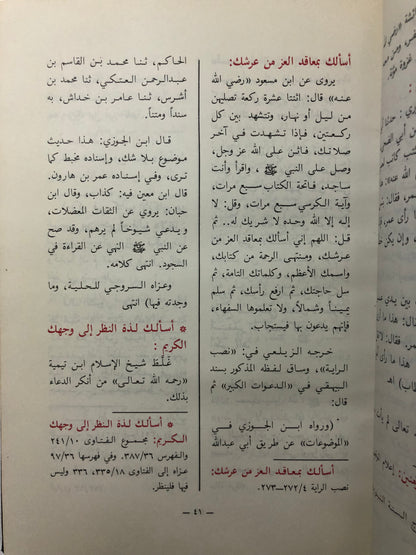 أسألك بمعاقد العز من عرشك:
يروى عن ابن مسعود «رضي الله
عنه» قال: اثنتا عشرة ركعة تصليهن
من ليل أو نهار، وتتشهد بين كل
ركعتين، فإذا تشهدت في آخر
صلاتك، فاثن على الله عز وجل،
وصل على النبي ﷺ، واقرأ وأنت
ساجد، فاتحة الكتاب سبع مرات،
وآية الكرسي سبع مرات، وقل: لا
إله إلا الله وحده لا شريك له.. ثم
قل: اللهم إني أسألك بمعاقد العز من
عرشك، ومنتهى الرحمة من كتابك،
واسمك الأعظم، وكلماتك التامة، ثم
سل حاجتك، ثم ارفع رأسك، ثم سلم
يميناً وشمالاً، ولا تعلموها السفهاء،
فإنهم يدعون بها فيستجاب.
خرجه الزيلعي في: «نصب
الراية»، وساق لفظه المذكور بسند
البيهقي في «الدعوات الكبير» ثم
قال:
(ورواه ابن الجوزي في
«الموضوعات» عن طريق أبي عبدالله
أسألك بمعاقد العز من عرشك:
نصب الراية ٢٧٢/٤-٢٧٣.
الحاكم، ثنا محمد بن القاسم بن
عبدالرحمن العتكي، ثنا محمد بن
أشرس، ثنا عامر بن خداش، به
سنداً ومتناً.
قال ابن الجوزي: هذا حديث
موضوع بلا شك، وإسناده مخبط كما
ترى، وفي إسناده عمر بن هارون.
قال ابن معين فيه: كذاب، وقال ابن
حبان: يروي عن الثقات المعضلات،
ويدعي شيوخاً لم يرهم، وقد صح
عن النبي ﷺ النهي عن القراءة في
السجود. انتهى كلامه.
وعزاه السروجي للحلية، وما
وجدته فيها) انتهى
* أسألك لذة النظر إلى وجهك
الكريم:
غلَّط شيخ الإسلام ابن تيمية
«رحمه الله تعالى» من أنكر الدعاء
بذلك.
* أسألك لذة النظر إلى وجهك
الكريم: مجموع الفتاوى ٢٤١/١٠
والفهرس ٣٨٧/٣٦. وفي فهرسها ٩٧/٣٦
عزاه إلى الفتاوى ٣٣٥/١٨، ٣٣٦ وليس
فيها فلينظر.
— ٤١ —